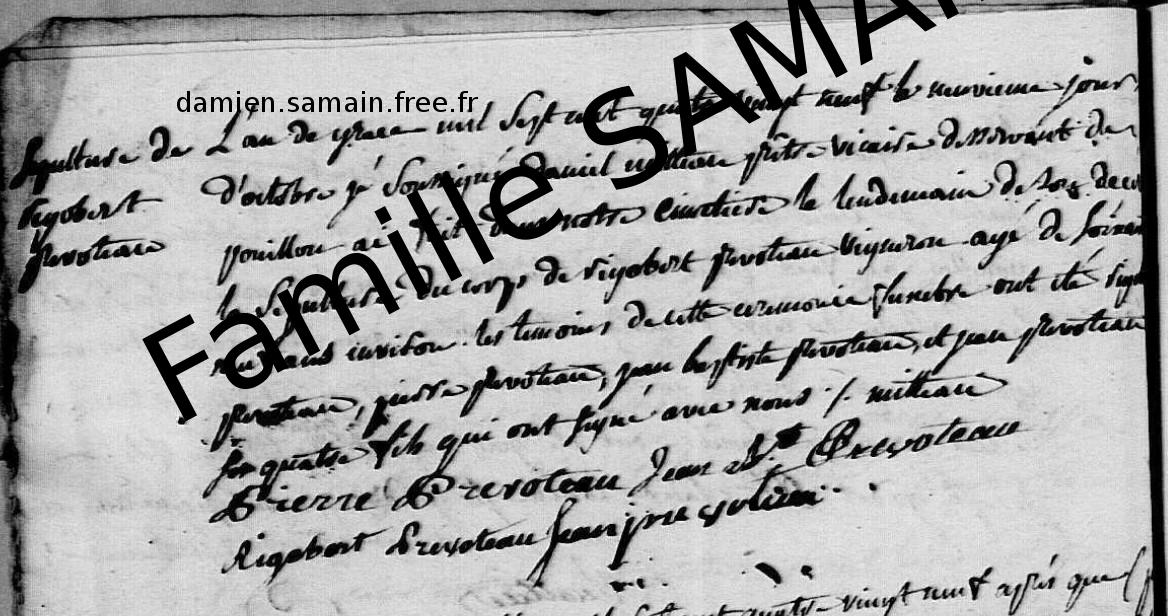 Famille SAMAI
damien.samain.free.fr
Sepulture de
rigobert
prevoteau
L'an de grace mil sept cent quatre vingt neuf le neuvieme jour
d'octobre je soussigné Daniel milteau prêtre vicaire desservant de
pouillon ai fait dans notre cimetiere le lendemain de son
la sepulture du corps de rigobert prevoteau vigneron agé de
ans environ. les temoins de cette ceremonie funebre ont été
prevoteau, pierre prevoteau, jean baptiste prevoteau, et jean prevoteau
ses quatre fils qui ont signé avec nous ./. milteau
Pierre Prevoteau Jean Prevoteau
Rigobert Prevoteau Jean
quatre vingt neuf après que